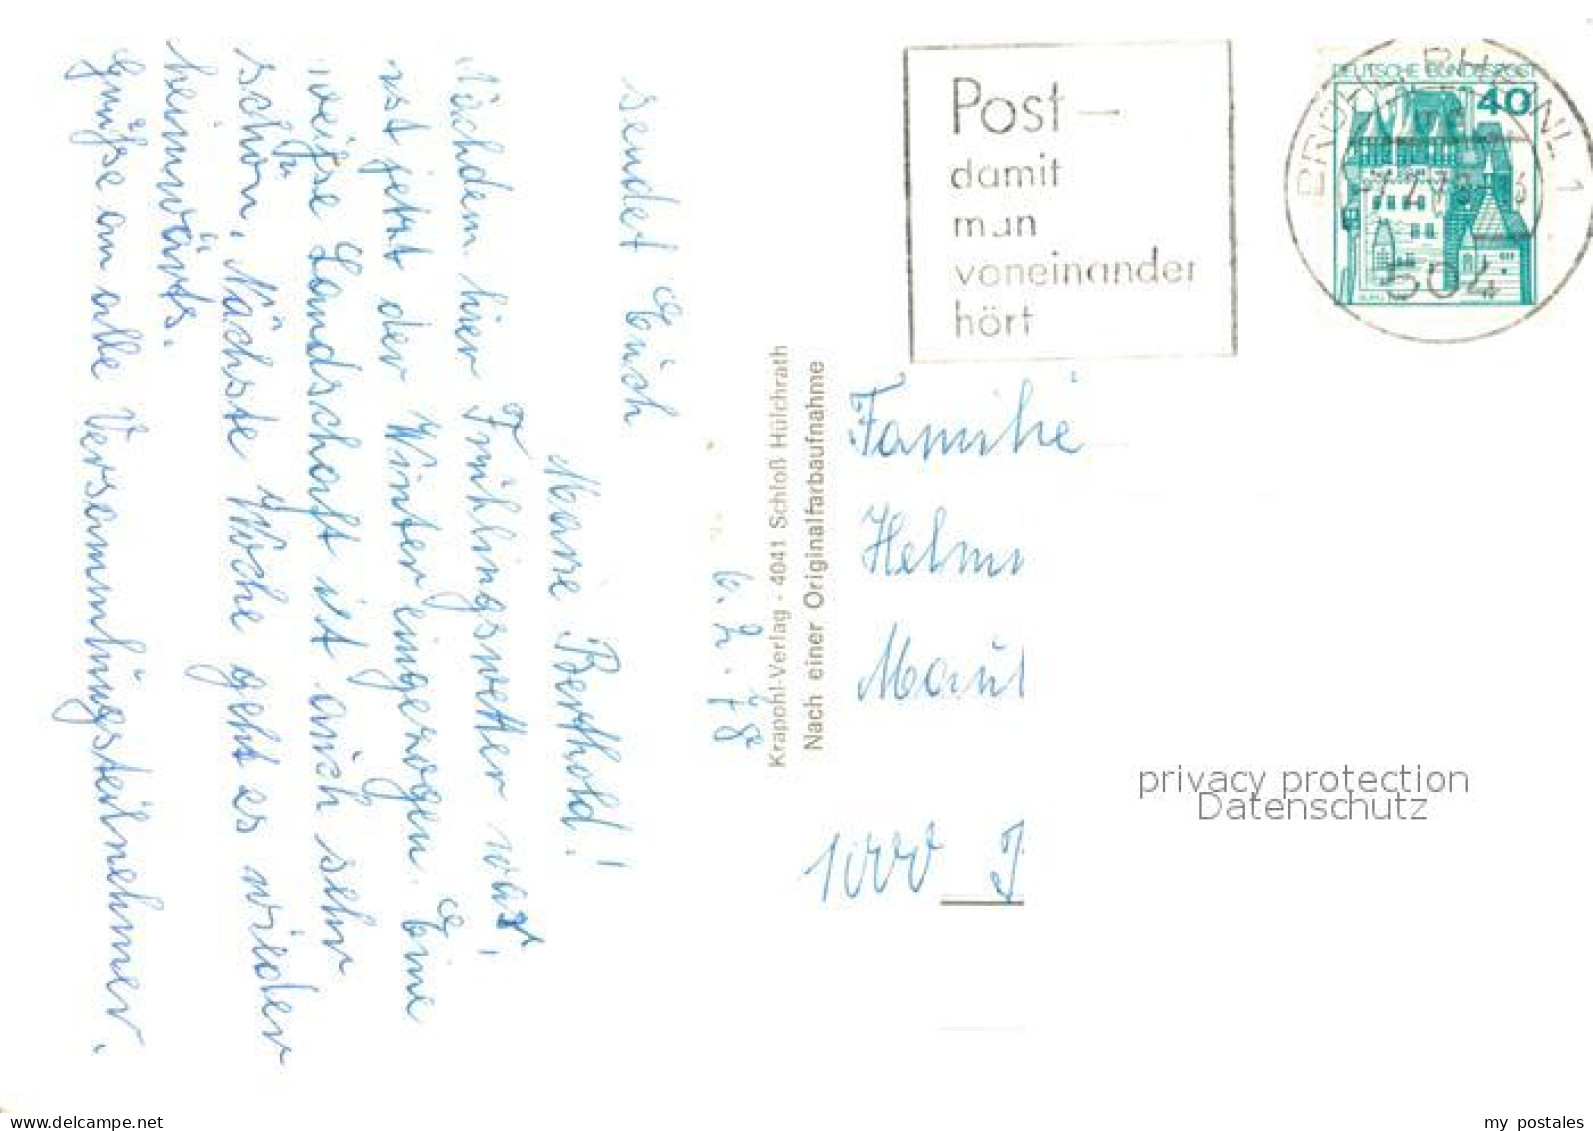 6. 2. 78
Marie Berthold!
Nachdem hier Frühlingswetter war,
ist jetzt der Winter eingezogen. Eine
weiße Landschaft ist auch sehr
schön. Nächste Woche geht es wieder
heimwärts.
Grüße an alle Versammlungsteilnehmer.
sendet Euch
Krapohl-Verlag - 4041 Schloß Hülchrath
Nach einer Originalfarbaufnahme
Post –
damit
man
voneinander
hört
DEUTSCHE BUNDESPOST
40
504
1
Familie
Helmu
Maul
1000
privacy protection
Datenschutz
www.delcampe.net
my_postales